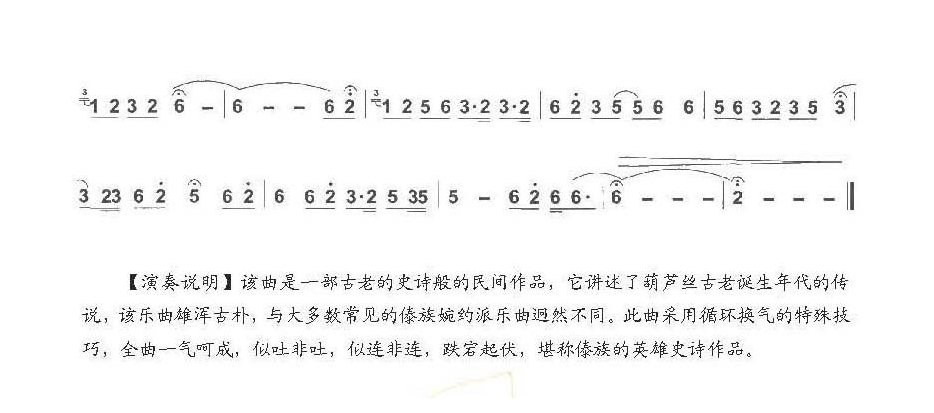 3 1 2 3 2 6 – | 6 – – 6 2 | 3 1 2 5 6 3·2 3·2 | 6 2 3 5 5 6 6 | 5 6 3 2 3 5 3 |
3 23 6 2 5 6 2 | 6 6 2 3·2 5 35 | 5 – 6 2 6 6· | 6 – – – | 2 – – – ‖
【演奏说明】该曲是一部古老的史诗般的民间作品，它讲述了葫芦丝古老诞生年代的传
说，该乐曲雄浑古朴，与大多数常见的傣族婉约派乐曲迥然不同。此曲采用循环换气的特殊技
巧，全曲一气呵成，似吐非吐，似连非连，跌宕起伏，堪称傣族的英雄史诗作品。